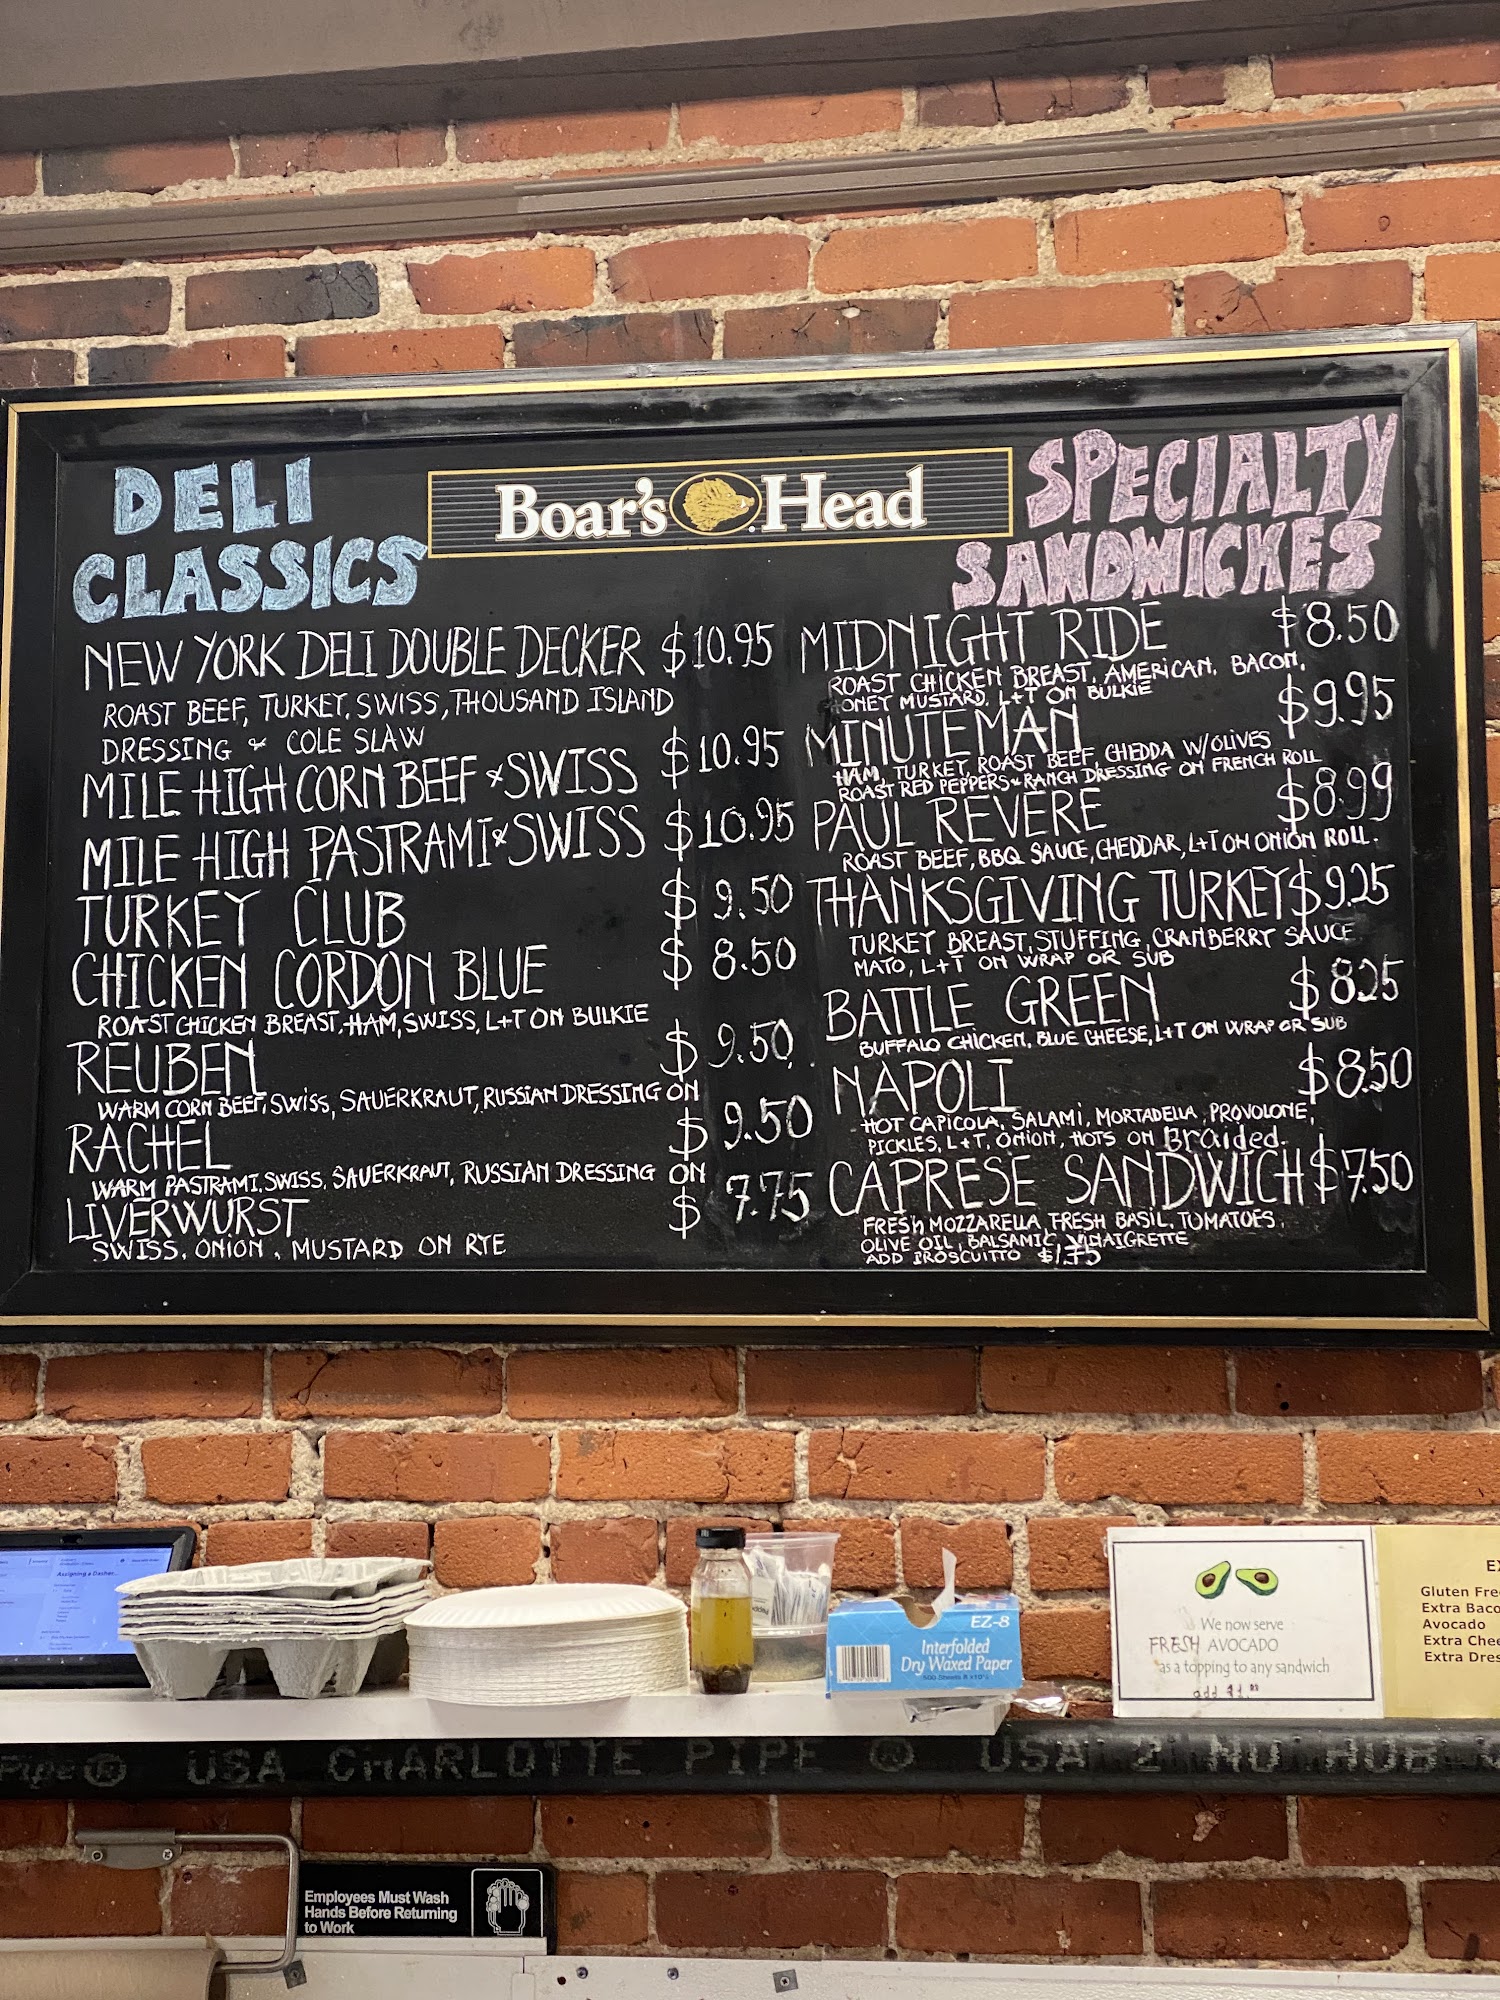 DELI
CLASSICS
Boar's Head
SPECIALTY
SANDWICHES
NEW YORK DELI DOUBLE DECKER $10.95
ROAST BEEF, TURKEY, SWISS, THOUSAND ISLAND
DRESSING & COLE SLAW
MILE HIGH CORN BEEF & SWISS $10.95
MILE HIGH PASTRAMI & SWISS $10.95
TURKEY CLUB $9.50
CHICKEN CORDON BLUE $8.50
ROAST CHICKEN BREAST, HAM, SWISS, L+T ON BULKIE
REUBEN $9.50
WARM CORN BEEF, SWISS, SAUERKRAUT, RUSSIAN DRESSING ON
RACHEL $9.50
WARM PASTRAMI, SWISS, SAUERKRAUT, RUSSIAN DRESSING ON
LIVERWURST $7.75
SWISS, ONION, MUSTARD ON RYE
MIDNIGHT RIDE $8.50
ROAST CHICKEN BREAST, AMERICAN, BACON,
ONEY MUSTARD, L+T ON BULKIE
MINUTEMAN $9.95
HAM, TURKEY, ROAST BEEF, CHEDDA W/OLIVES
ROAST RED PEPPERS & RANCH DRESSING ON FRENCH ROLL
PAUL REVERE $8.99
ROAST BEEF, BBQ SAUCE, CHEDDAR, L+T ON ONION ROLL.
THANKSGIVING TURKEY $9.25
TURKEY BREAST, STUFFING, CRANBERRY SAUCE
MATO, L+T ON WRAP OR SUB
BATTLE GREEN $8.25
BUFFALO CHICKEN, BLUE CHEESE, L+T ON WRAP OR SUB
NAPOLI $8.50
HOT CAPICOLA, SALAMI, MORTADELLA, PROVOLONE,
PICKLES, L+T, ONION, HOTS ON Braided.
CAPRESE SANDWICH $7.50
FRESH MOZZARELLA, FRESH BASIL, TOMATOES,
OLIVE OIL, BALSAMIC VINAIGRETTE
ADD PROSCUITTO $1.75
Assigning a Dasher...
EZ-8
Interfolded
Dry Waxed Paper
We now serve
FRESH AVOCADO
as a topping to any sandwich
add $1.00
Gluten Fre
Extra Baco
Avocado
Extra Chee
Extra Dres
Pipe ® USA CHARLOTTE PIPE ® USA 2 NO HUB
Employees Must Wash
Hands Before Returning
to Work